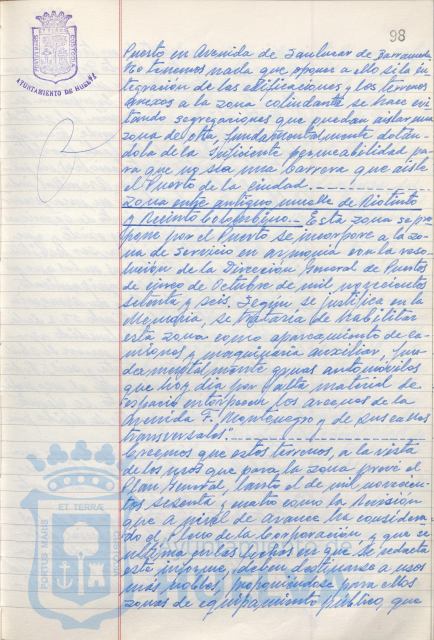 98
AYUNTAMIENTO DE HUELVA
Puerto en Avenida de Sanlucar de Barrameda
No tenemos nada que oponer a ello si la in
tegración de las edificaciones y los terrenos
anexos a la zona colindante se hace evi
tando segregaciones que puedan aislar una
zona de otra, fundamentalmente dotán-
dola de la suficiente permeabilidad pa-
ra que no sea una barrera que aisle
el Puerto de la ciudad.
Zona entre antiguo muelle de Riotinto
y Recinto Colombino.- Esta zona se pro
pone por el Puerto se incorpore a la zo-
na de Servicio en armonía con la reso-
lución de la Dirección General de Puertos
de cinco de Octubre de mil novecientos
setenta y seis. Según se justifica en la
Memoria, se trataría de habilitar
esta zona como aparcamiento de ca-
miones y maquinaria auxiliar, fun-
damentalmente gruas automóviles
que hoy día por falta material de
espacio entorpecen los accesos de la
Avenida F. Montenegro y de sus calles
transversales.
Creemos que estos terrenos, a la vista
de los usos que para la zona prevé el
Plan General, tanto el de mil novecien-
tos sesenta y cuatro como la Revisión
que a nivel de avance ha considera-
do el Pleno de la Corporación y que se
ultima en las fechas en que se redacta
este informe, deben destinarse a usos
más nobles, proponiéndose para ellos
zonas de equipamiento público, que
PORTUS MARIS
ET TERRÆ